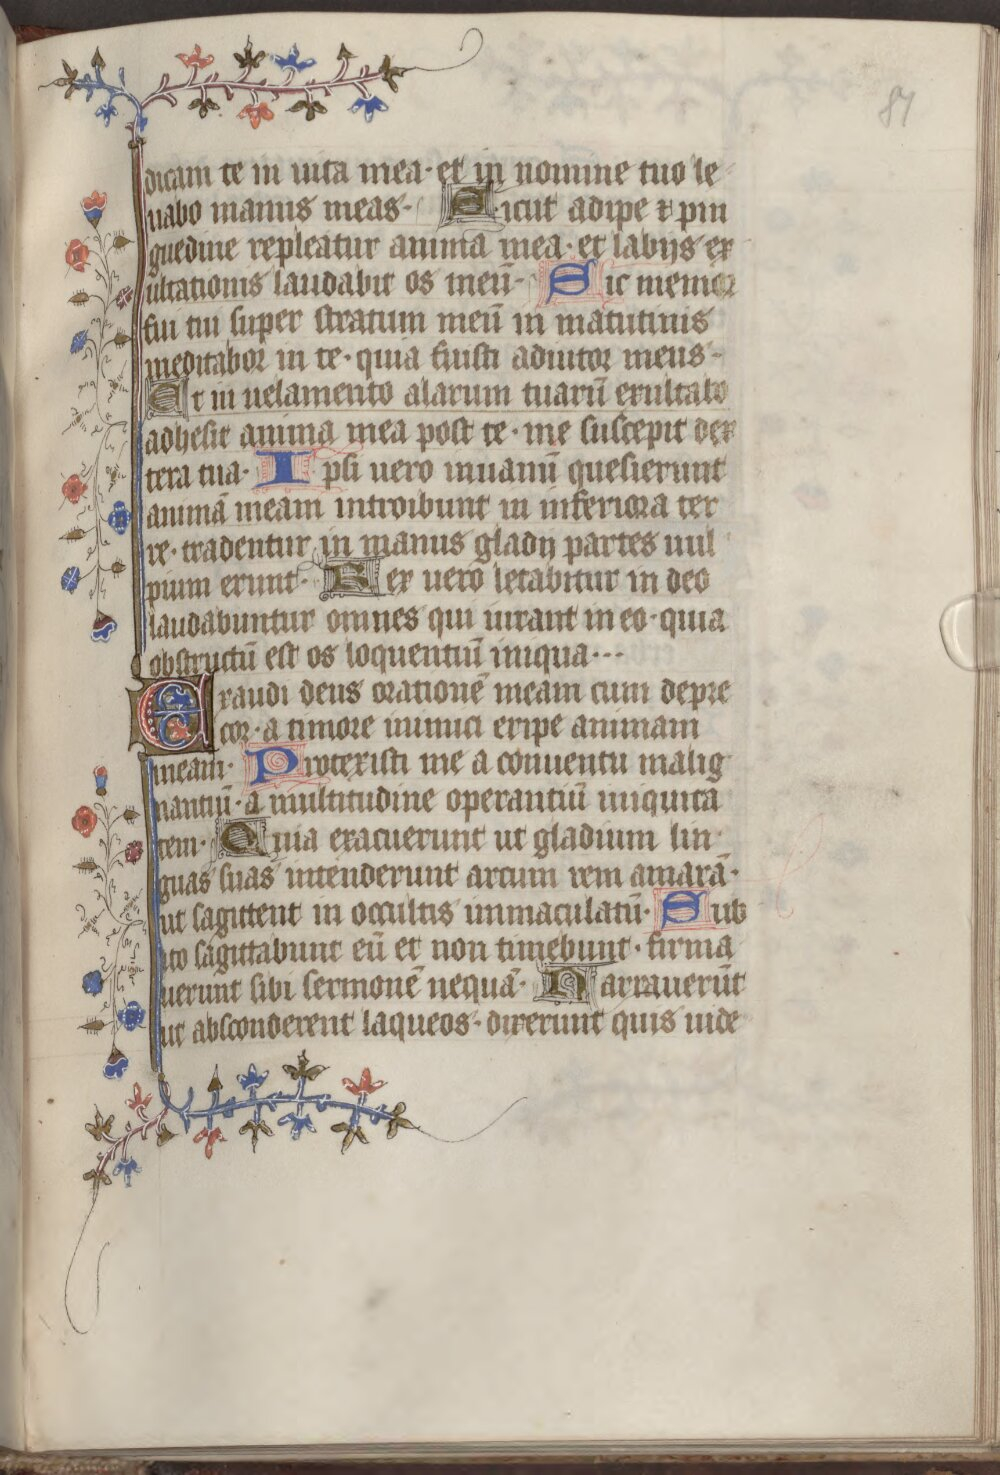 81
dicam te in uita mea· et in nomine tuo le
uabo manus meas· Sicut adipe et pin
guedine repleatur anima mea· et labijs ex
ultationis laudabit os meū· Sic memor
fui tui super stratum meū in matutinis
meditabor in te· quia fuisti adiutor meus·
Et in uelamento alarum tuarū exultabo
adhesit anima mea post te· me suscepit dex
tera tua· Ipsi uero inuanū quesierunt
animā meam introibunt in inferiora ter
re· tradentur in manus gladij partes uul
pium erunt· Rex uero letabitur in deo
laudabuntur omnes qui iurant in eo· quia
obstructū est os loquentiū iniqua···
Exaudi deus orationē meam cum depre
cor· a timore inimici eripe animam
meam· Protexisti me a conuentu malig
nantiū· a multitudine operantiū iniquita
tem· Quia exacuerunt ut gladium lin
guas suas intenderunt arcum rem amarā·
ut sagittent in occultis immaculatū· Sub
ito sagittabunt eū et non timebunt· firma
uerunt sibi sermonē nequā· Narrauerūt
ut absconderent laqueos· dixerunt quis uide